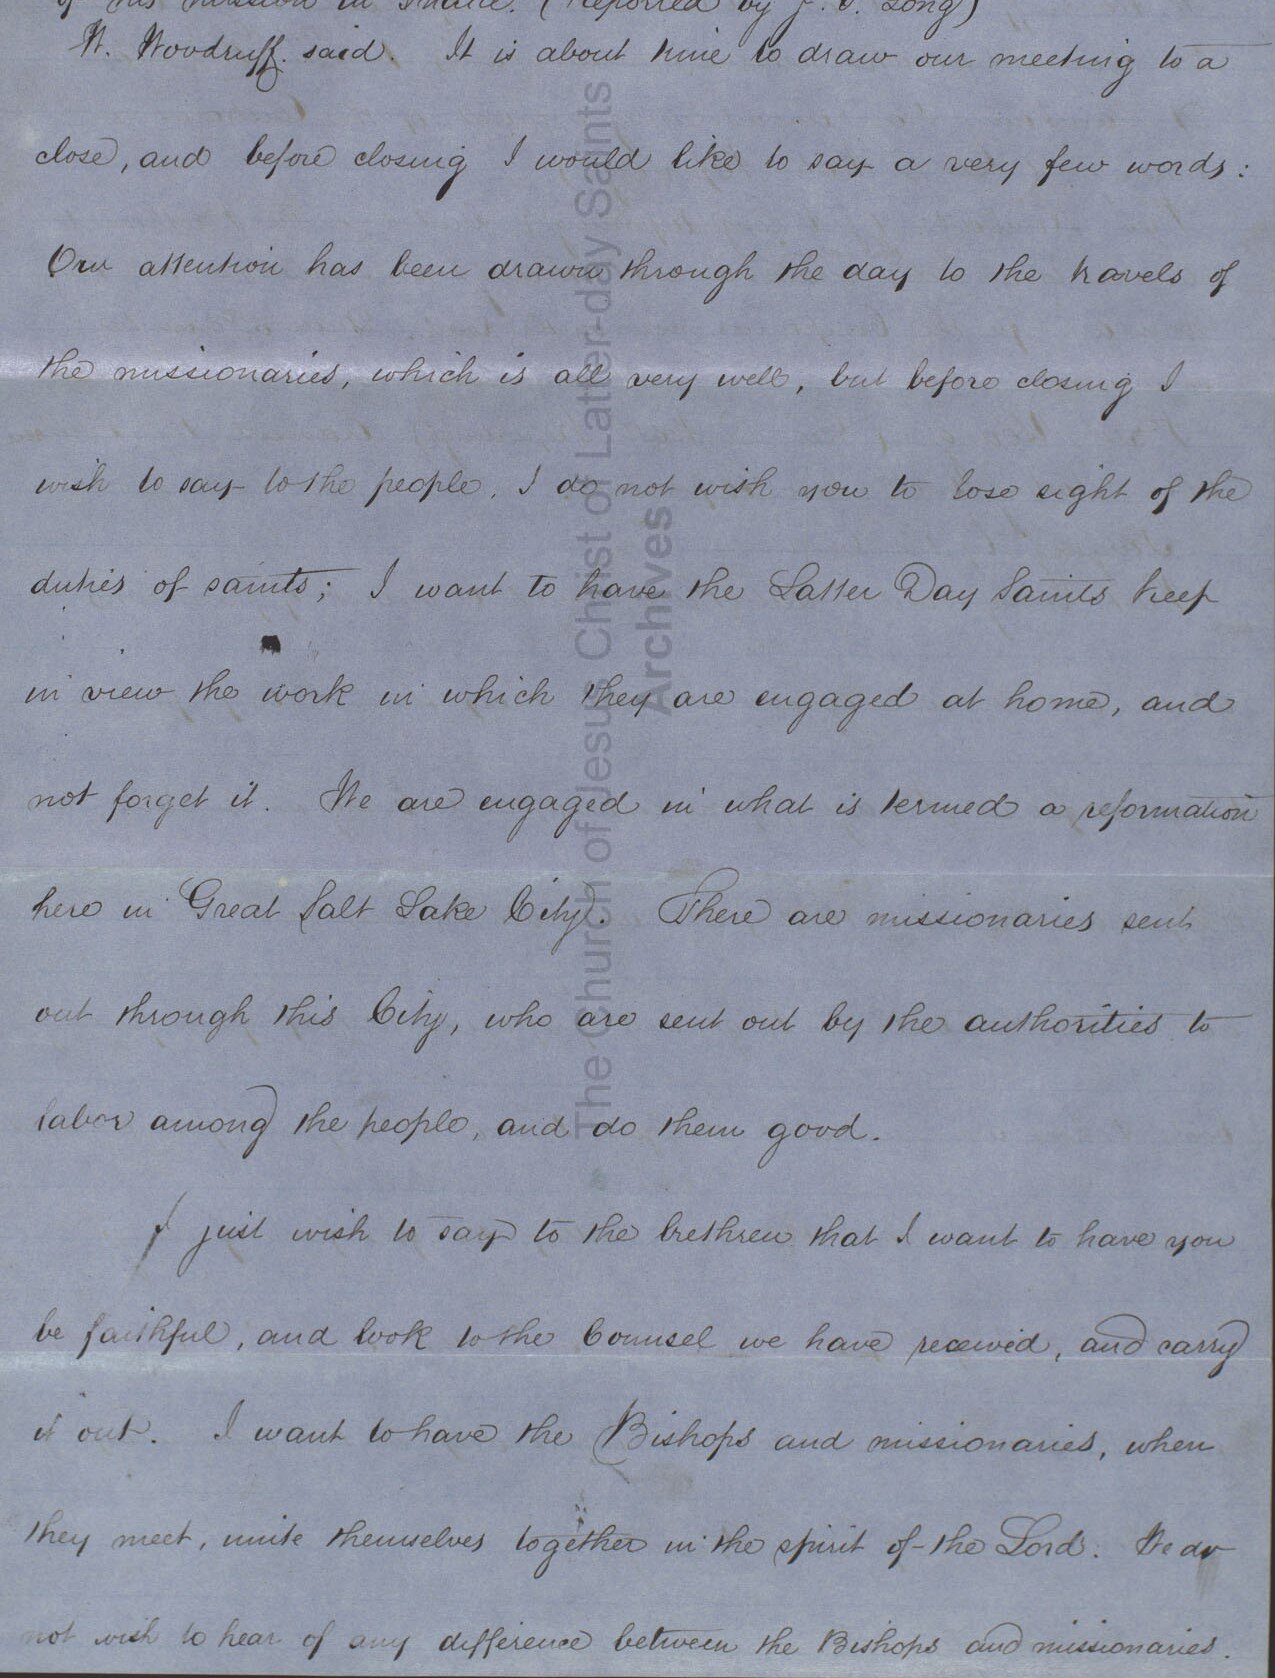 of his mission in Indide. (Reported by J. V. Long)
W. Woodruff. said. It is about time to draw our meeting to a
close, and before closing I would like to say a very few words:
Our attention has been drawn through the day to the travels of
the missionaries, which is all very well, but before closing I
wish to say to the people, I do not wish you to lose sight of the
duties of saints; I want to have the Latter Day Saints keep
in view the work in which they are engaged at home, and
not forget it. We are engaged in what is termed a reformation
here in Great Salt Lake City. There are missionaries sent
out through this City, who are sent out by the authorities to
labor among the people, and do them good.
I just wish to say to the brethren that I want to have you
be faithful, and look to the Counsel we have received, and carry
it out. I want to have the Bishops and missionaries, when
they meet, unite themselves together in the spirit of the Lord. We do
not wish to hear of any difference between the Bishops and missionaries.
The Church of Jesus Christ of Latter-day Saints
Archives